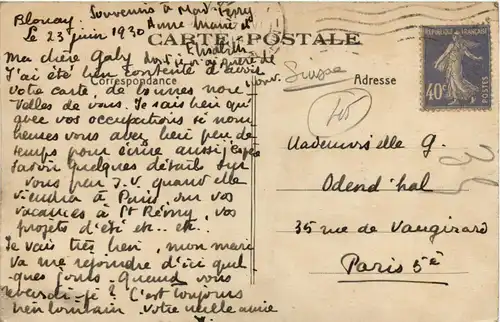 Souvenirs à Mad. Ferry
Anne Marie et
Elisabeth
Blonay
Le 23 juin 1930
CARTE POSTALE
Ma chère Gaby
J'ai été bien contente d'avoir
Correspondance
Adresse
votre carte, de bonnes nou-
velles de vous. Je sais bien qu'
avec vos occupations si nom-
breuses vous avez bien peu de
temps pour écrire aussi j'espère
savoir quelques détails sur
vous par J. V. quand elle
viendra à Paris, sur vos
vacances à St Rémy, vos
projets d'été etc.. etc..
Je vais très bien, mon mari
va me rejoindre d'ici quel
-ques jours. Quand vous
reverrai-je? C'est toujours
bien lointain. Votre vieille amie
Suisse
REPUBLIQUE FRANÇAISE
40c
POSTES
Mademoiselle G.
Odend'hal
35 rue de Vaugirard
Paris 5è